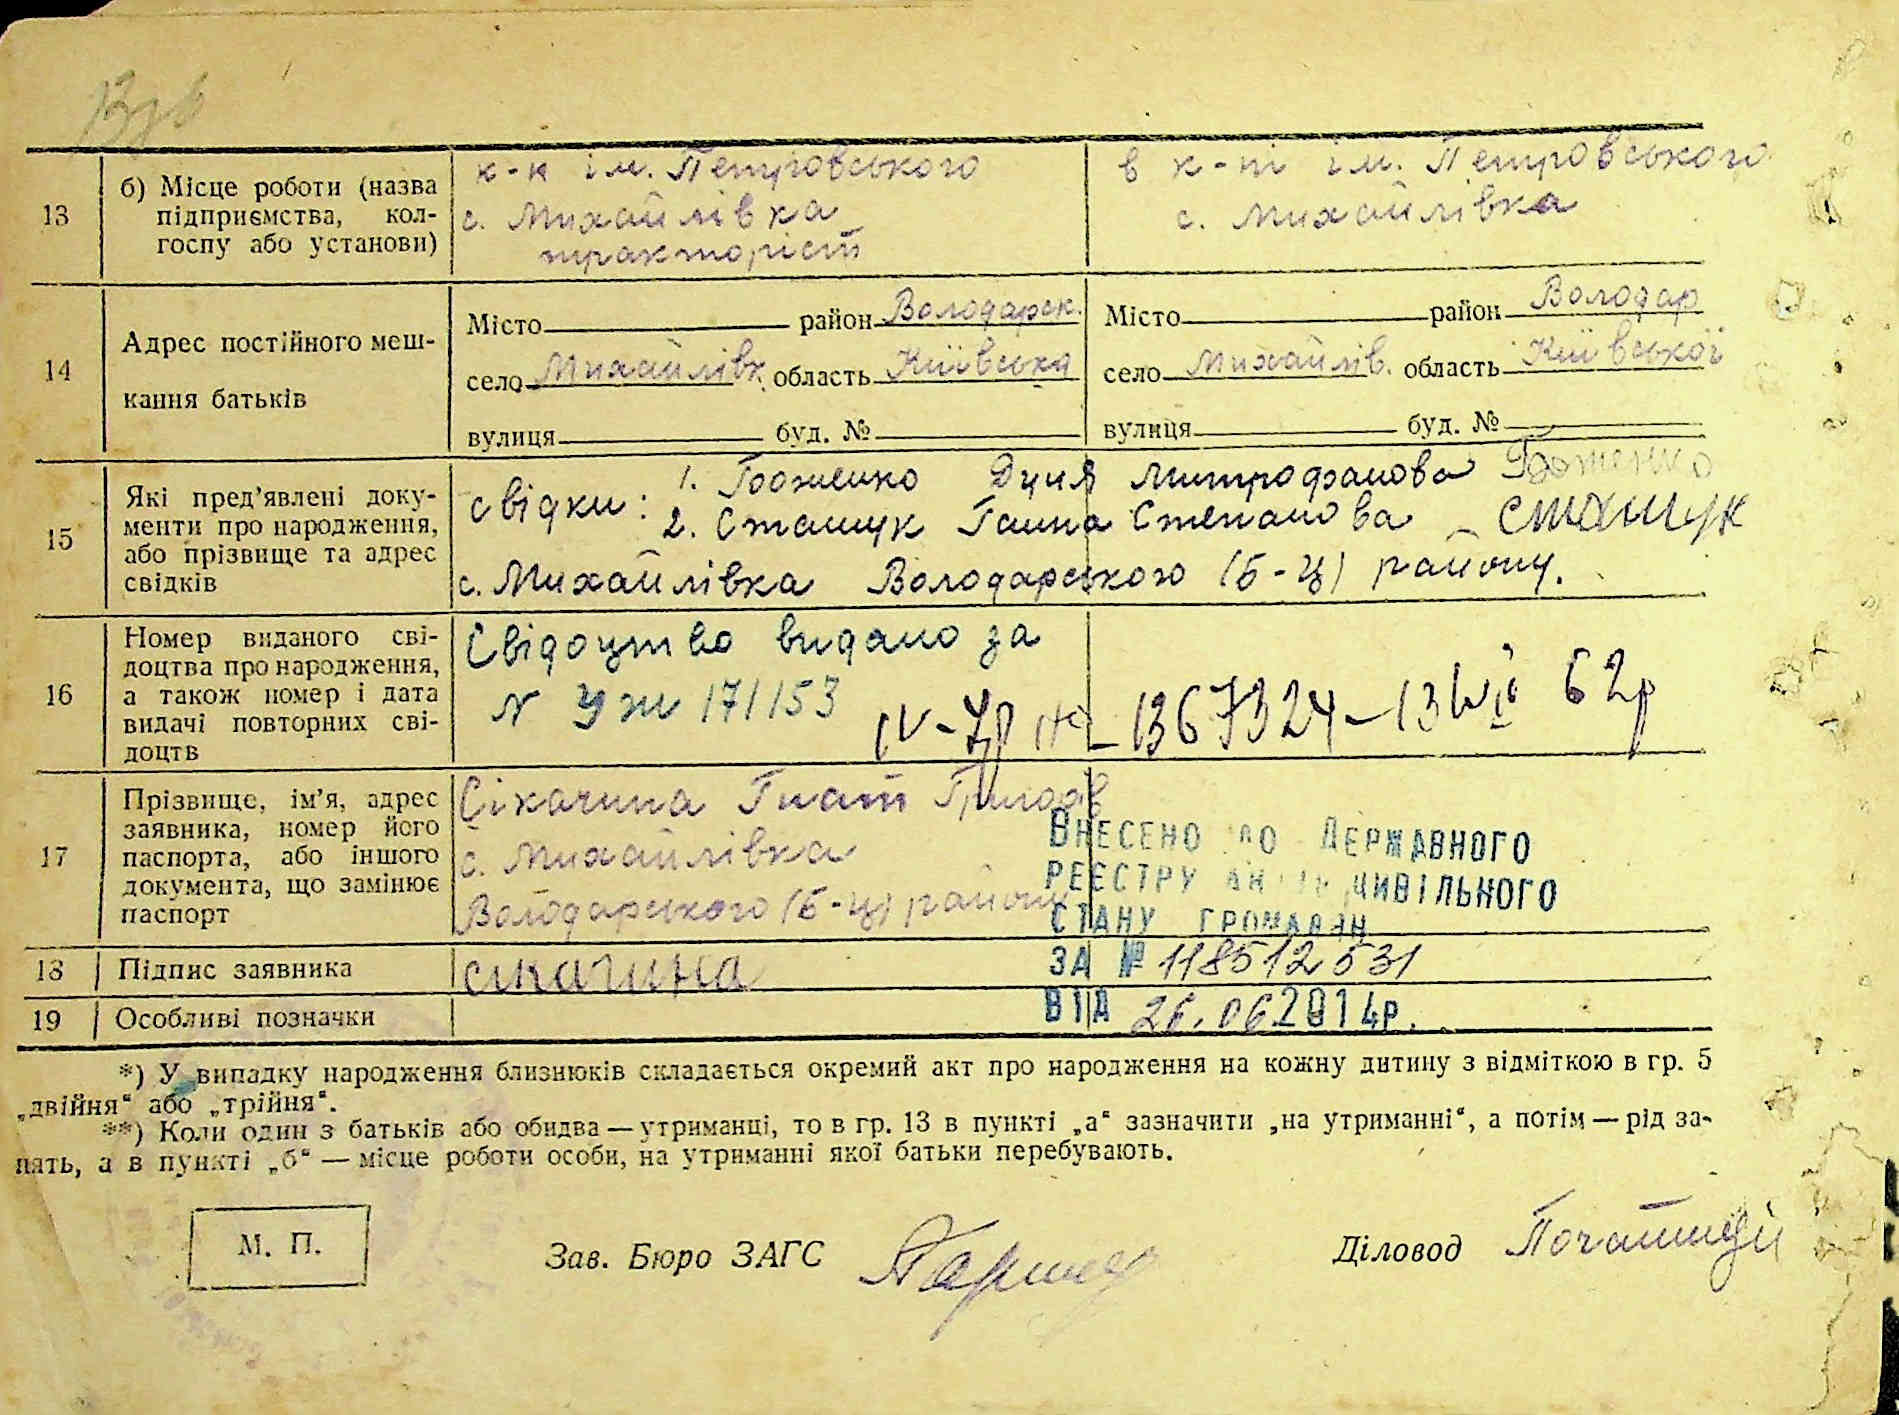 13
б) Місце роботи (назва
підприємства, кол-
госпу або установи)
к-п ім. Петровського
с. Михайлівка
тракторіст
в к-пі ім. Петровського
с. Михайлівка
14
Адрес постійного меш-
кання батьків
Місто район Володарськ.
село Михайлівк. область Київська
вулиця буд. №
Місто район Володар
село Михайлів. область Київської
вулиця буд. №
15
Які пред'явлені доку-
менти про народження,
або прізвище та адрес
свідків
свідки: 1. Дуня Митрофанова
2. Сташук Ганна Степанова – Сташук
с. Михайлівка Володарського (Б-Ц) району.
16
Номер виданого сві-
доцтва про народження,
а також номер і дата
видачі повторних сві-
доцтв
Свідоцтво видано за
N УЖ 171153
1367324 – 13 VII 62р
17
Прізвище, ім'я, адрес
заявника, номер його
паспорта, або іншого
документа, що замінює
паспорт
Сікачина Гнат
с. Михайлівка
Володарського (Б-Ц) району
ВНЕСЕНО ДО ДЕРЖАВНОГО
РЕЄСТРУ АКТІВ ЦИВІЛЬНОГО
СТАНУ ГРОМАДЯН
ЗА № 118512531
ВІД 26.06.2014р.
18
Підпис заявника
сікачина
19
Особливі позначки
*) У випадку народження близнюків складається окремий акт про народження на кожну дитину з відміткою в гр. 5
„двійня“ або „трійня“.
**) Коли один з батьків або обидва — утриманці, то в гр. 13 в пункті „а“ зазначити „на утриманні“, а потім — рід за-
нять, а в пункті „б“ — місце роботи особи, на утриманні якої батьки перебувають.
М. П.
Зав. Бюро ЗАГС
Діловод